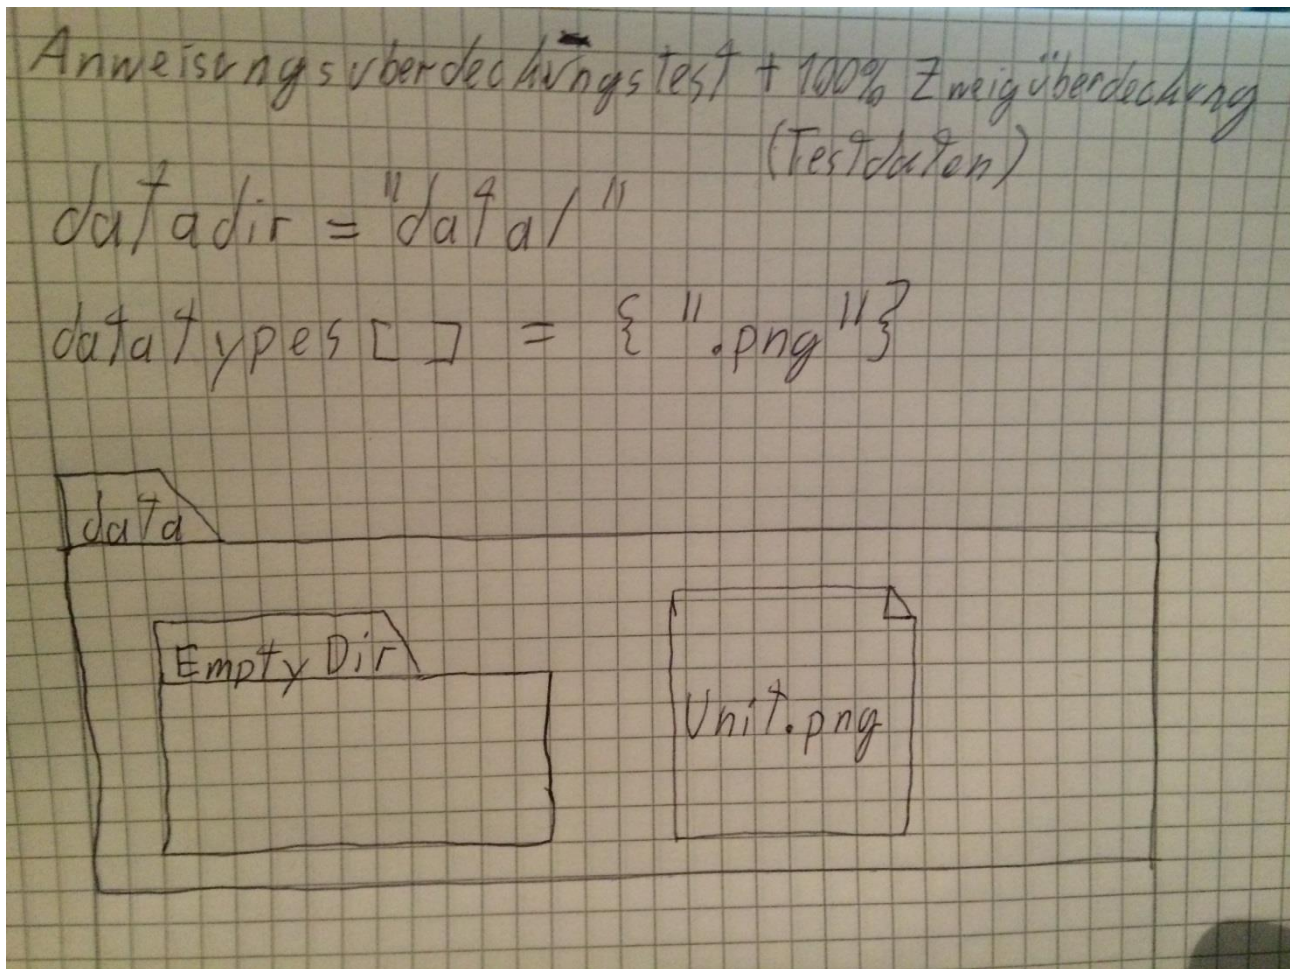 Anweisungsuberdeckungstest + 100% Zweigüberdeckung
(Testdaten)
datadir = "data/"
datatypes[] = {".png"}
data
Empty Dir
Unit.png